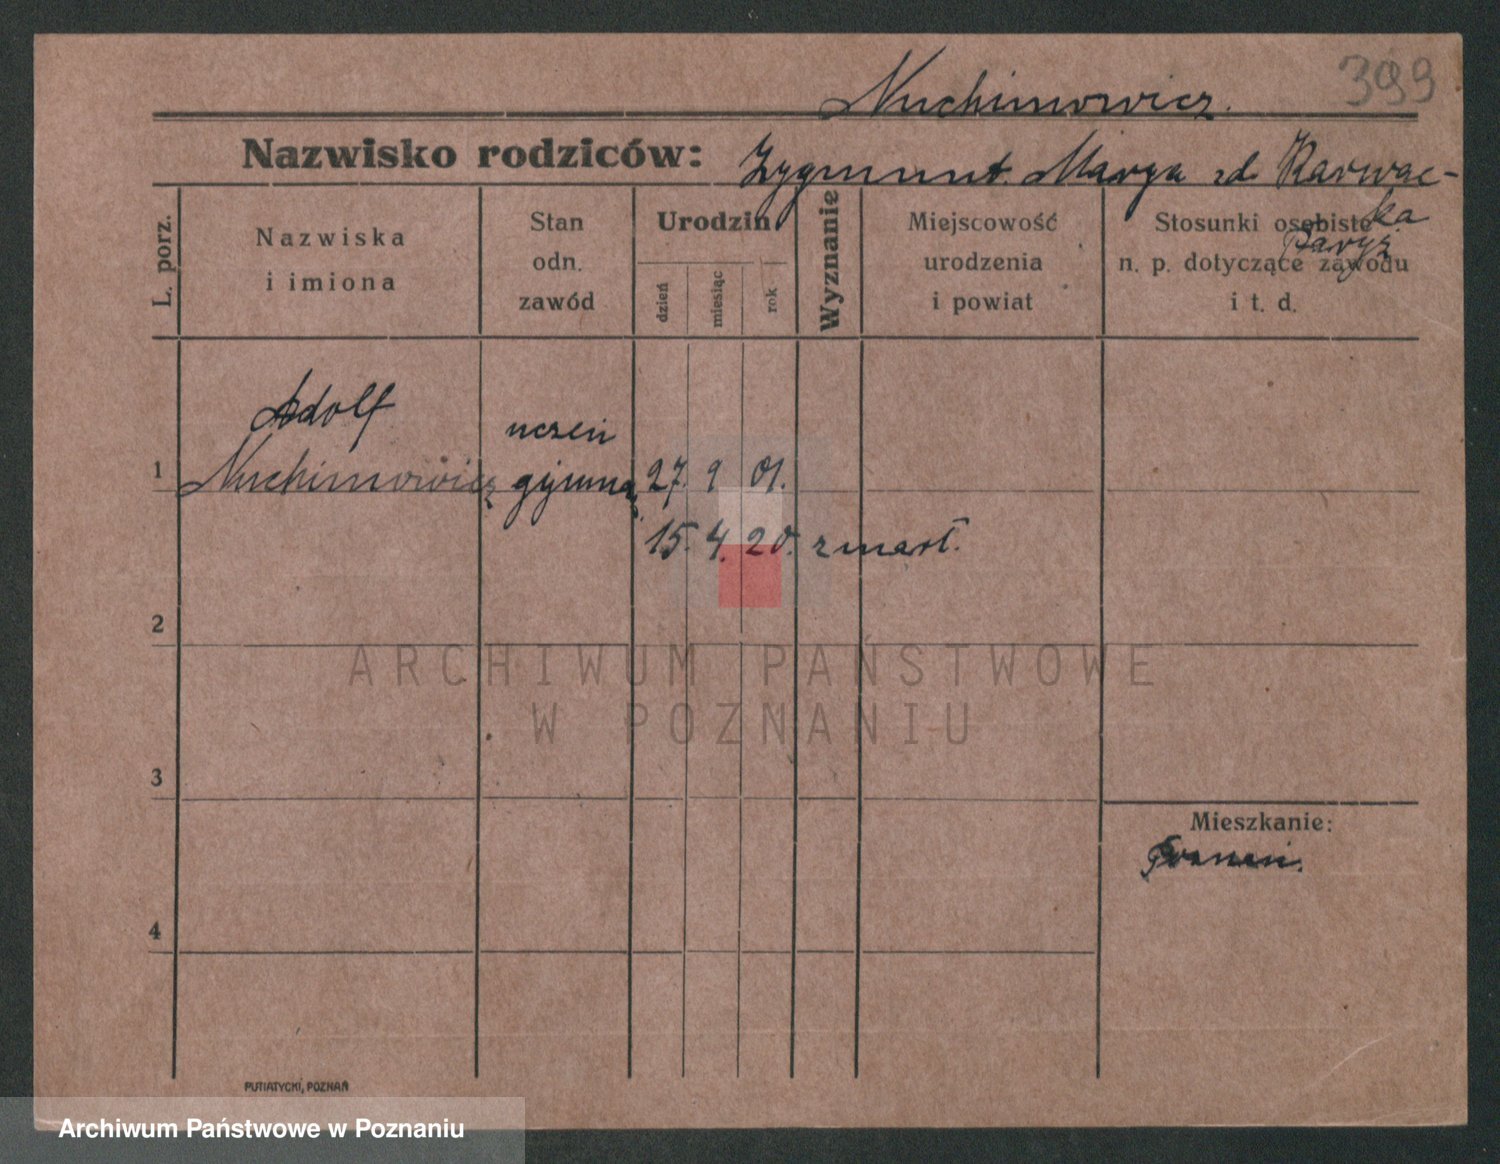 399
Nuchimowicz.
Nazwisko rodziców: Zygmunt. Marya zd. Karwac-
ka
Paryż
L. porz.
Nazwiska
i imiona
Stan
odn.
zawód
Urodzin
dzień
miesiąc
rok
Wyznanie
Miejscowość
urodzenia
i powiat
Stosunki osobiste
n. p. dotyczące zawodu
i t. d.
Adolf
1 Nuchimowicz
uczeń
gymnaz.
27. 9 01.
15. 4. 20. zmarł.
2
ARCHIWUM PAŃSTWOWE
W POZNANIU
3
Mieszkanie:
4
PUTIATYCKI, POZNAŃ
Archiwum Państwowe w Poznaniu